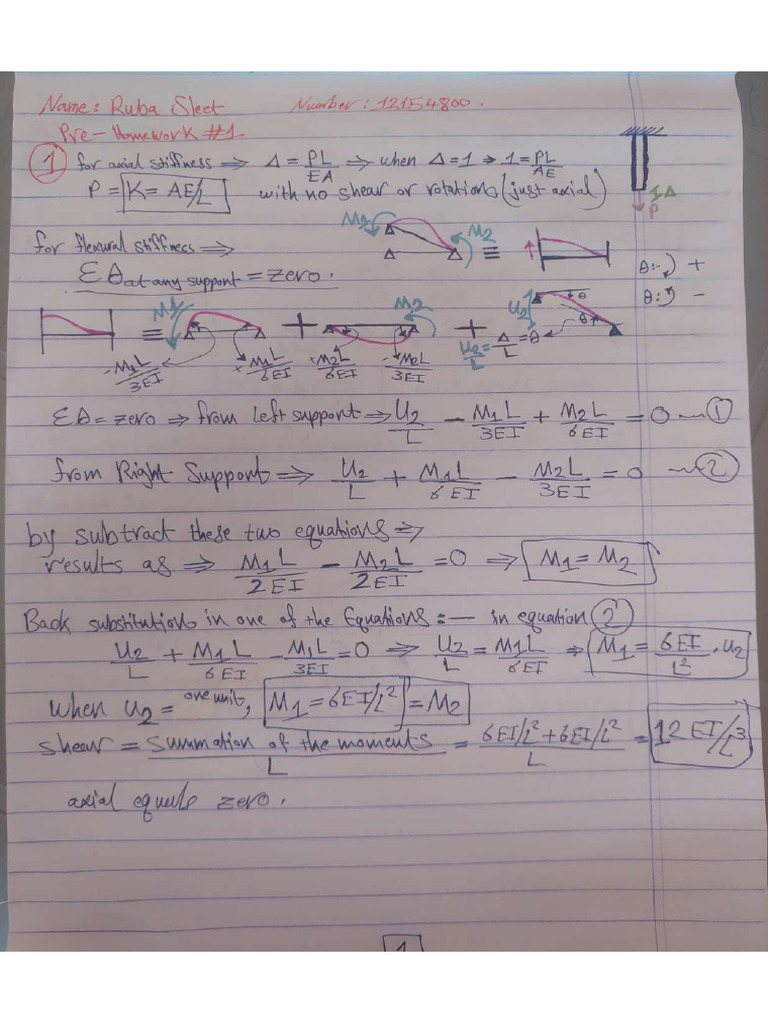 Name: Ruba Sleet Number: 12154800.
Pre-Homework #1
1 for axial stiffness ⇒ Δ = PL/EA ⇒ when Δ=1 → 1 = PL/AE
P = K = AE/L with no shear or rotation (just axial)
Δ
P
for flexural stiffness ⇒
M1 M2 ≡
Σθ at any support = zero.
θ:- +
θ: -
≡ M1 + M2 + U2 θ
θ
U2/L = Δ/L = θ
-M1L/3EI +M1L/6EI +M2L/6EI -M2L/3EI
Σθ = zero ⇒ from left support ⇒ U2/L - M1L/3EI + M2L/6EI = 0 — 1
from Right Support ⇒ U2/L + M1L/6EI - M2L/3EI = 0 — 2
by subtract these two equations ⇒
results as ⇒ M1L/2EI - M2L/2EI = 0 ⇒ M1 = M2
Back substitution in one of the Equations :— in equation 2
U2/L + M1L/6EI - M1L/3EI = 0 ⇒ U2/L = M1L/6EI ⇒ M1 = 6EI/L² . U2
when U2 = one unit, M1 = 6EI/L² = M2
shear = summation of the moments / L = 6EI/L² + 6EI/L² / L = 12EI/L³
axial equals zero.
1